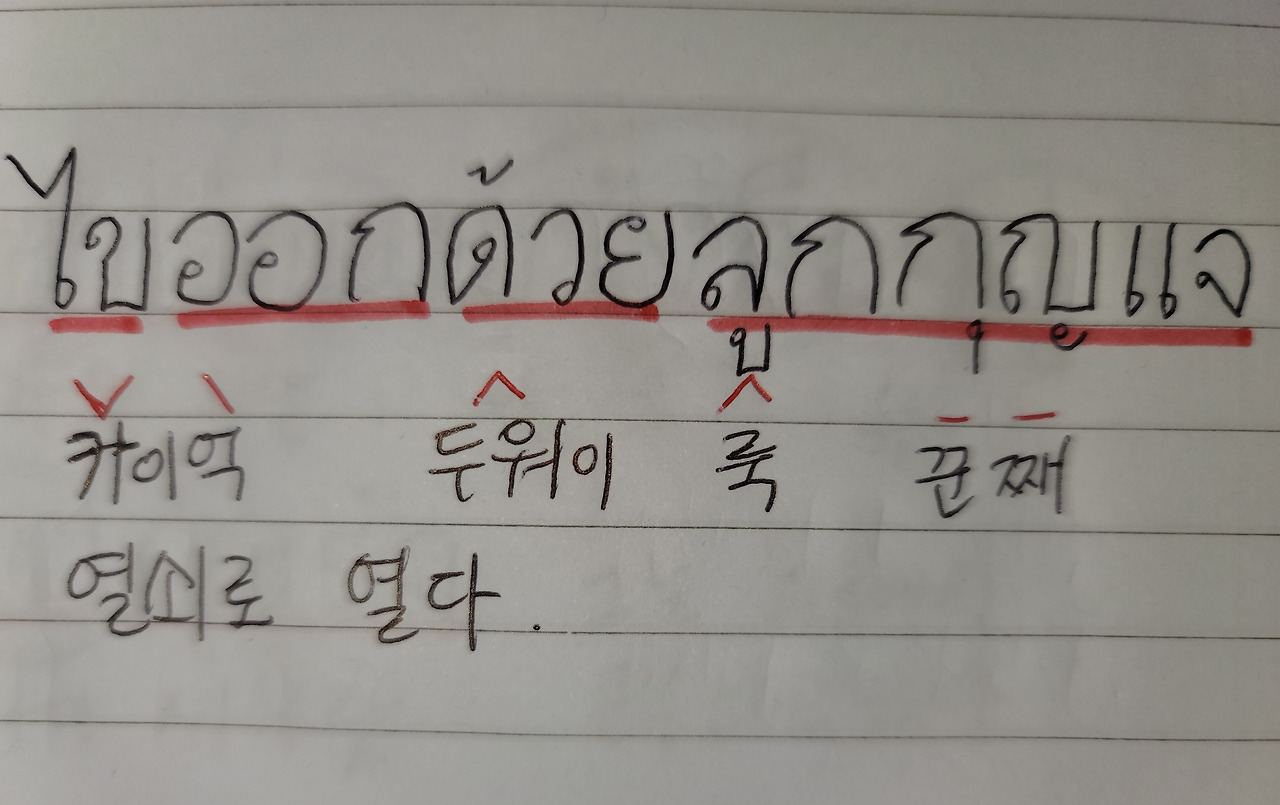 ไขออกด้วยลูกกุญแจ
카이억 두워이 룩 꾼째
열쇠로 열다.